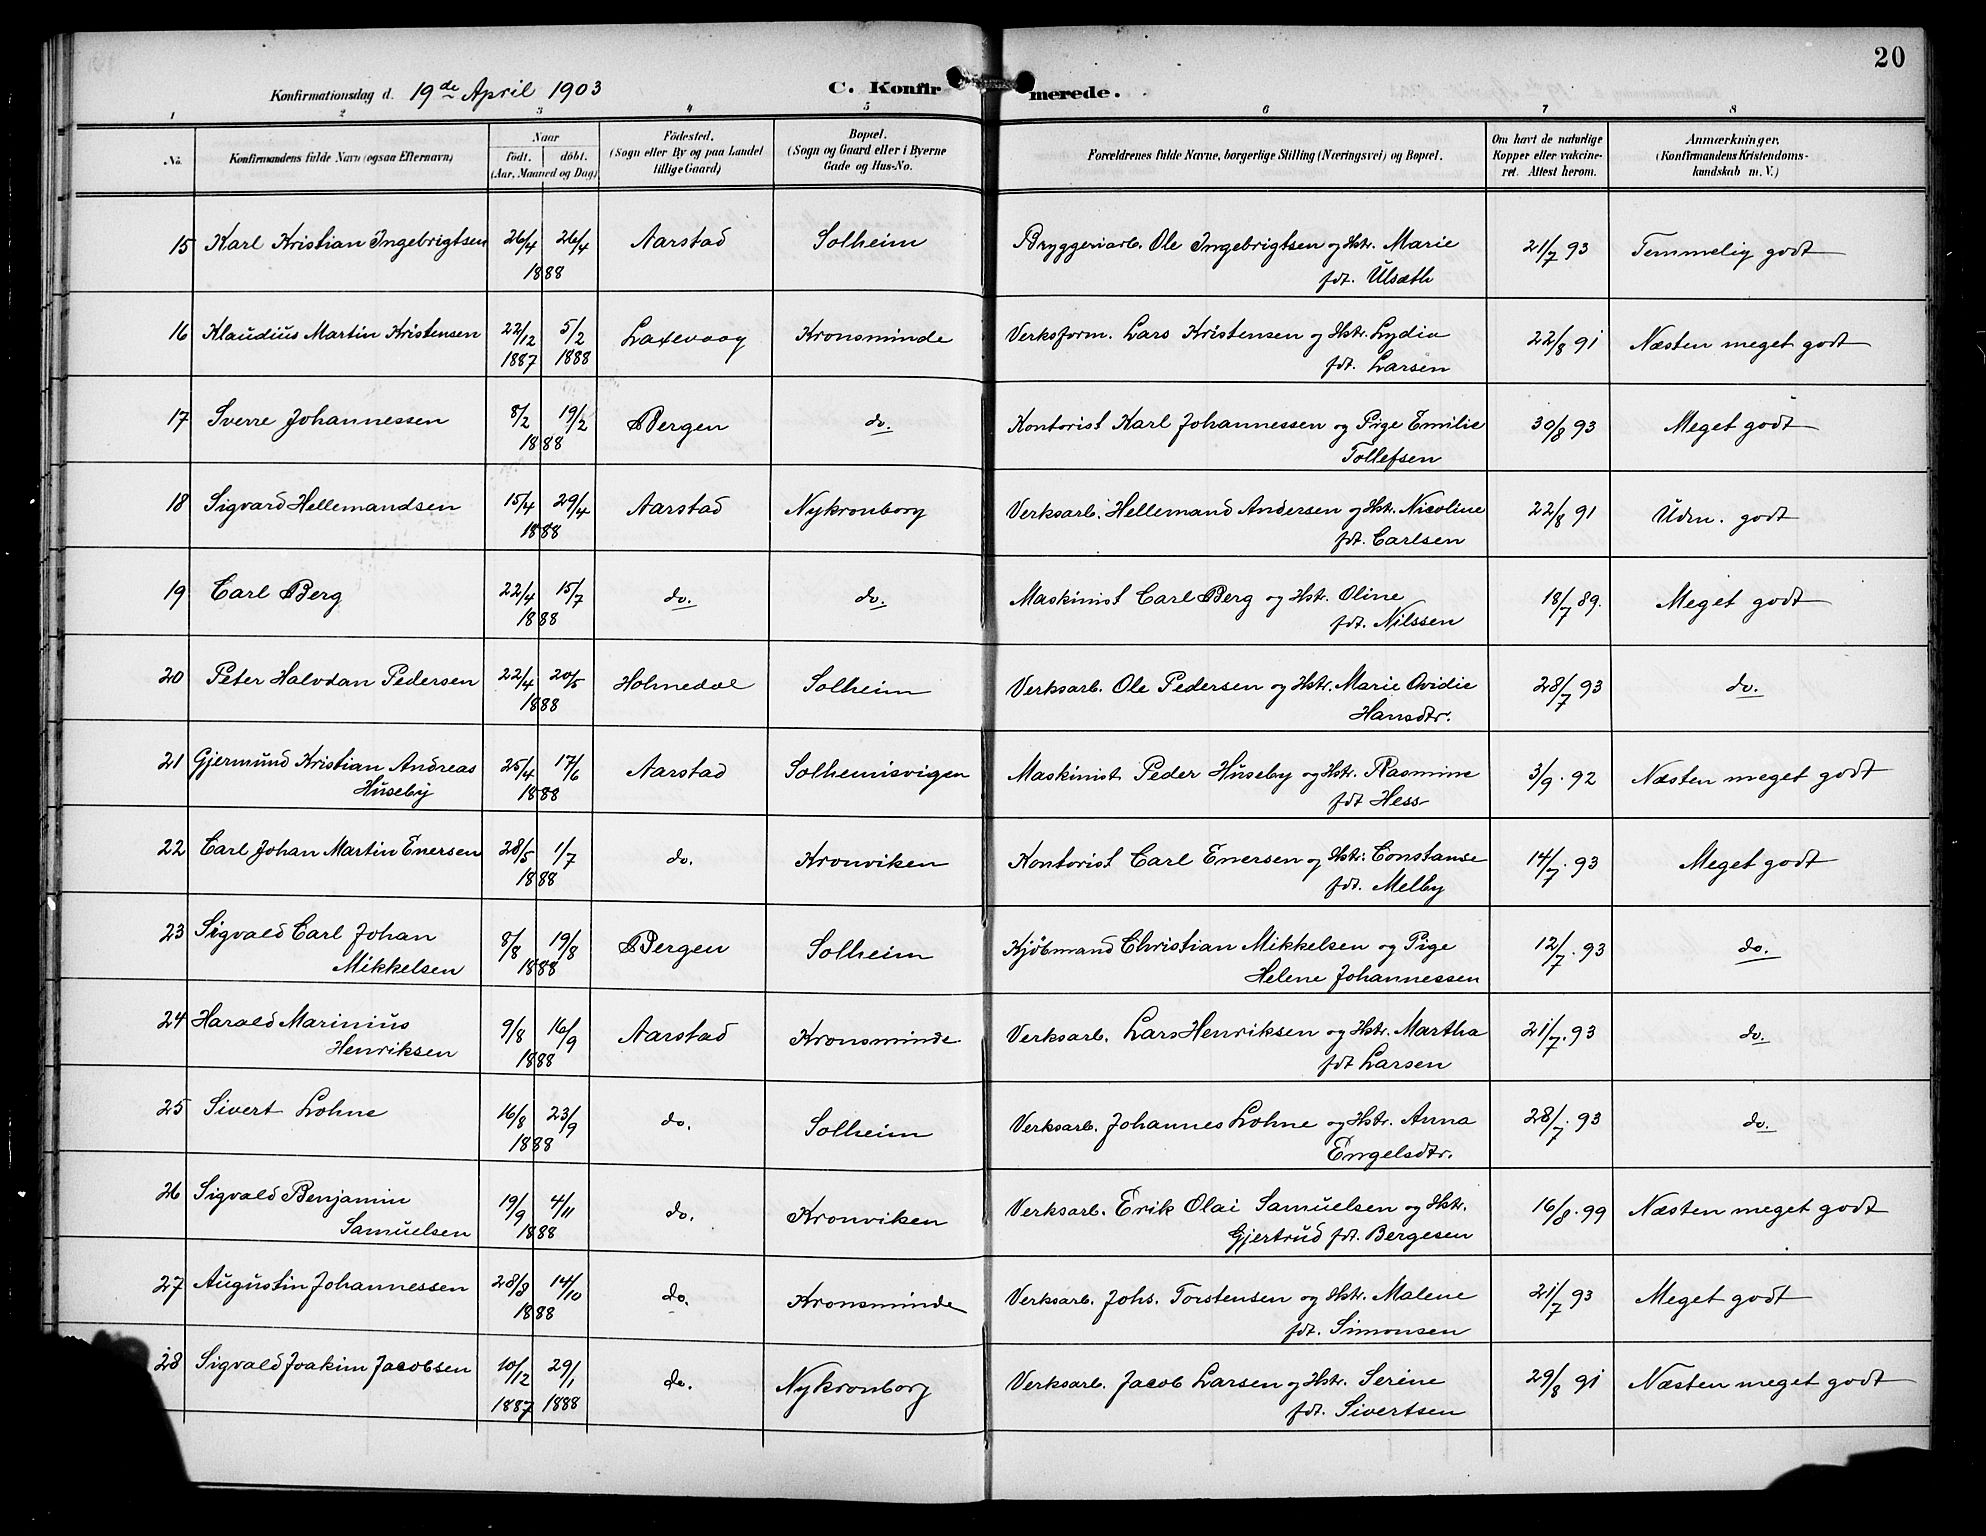 20
Konfirmationsdag d. 19de April 1903 C. Konfirmerede.
1 2 3 4 5 6 7 8
No. Konfirmandens fulde Navn (ogsaa Efternavn) Naar født. døbt. (Aar, Maaned og Dag) Fødested. (Sogn eller By og paa Landet tillige Gaard) Bopæl. (Sogn og Gaard eller i Byerne Gade og Hus-No. Forældrenes fulde Navne, borgerlige Stilling (Næringsvei) og Bopæl. Om havt de naturlige Kopper eller vakcineret. Attest herom. Anmærkninger. (Konfirmandens Kristendomskundskab m. V.)
15 Karl Kristian Ingebrigtsen 26/4 26/4 Aarstad Solheim Bryggeriarb. Ole Ingebrigtsen og Hstr. Marie 21/7 93 Temmelig godt
1888 fdt. Ulsæth
16 Klaudius Martin Kristensen 22/12 5/2 Laxevaag Kronsminde Verksform. Lars Kristensen og Hstr. Lydia 22/8 91 Næsten meget godt
1887 1888 fdt. Larsen
17 Sverre Johannessen 8/2 19/2 Bergen do. Kontorist Karl Johannessen og Pige Emilie 30/8 93 Meget godt
1888 Tollefsen
18 Sigvard Hellemandsen 15/4 29/4 Aarstad Nykronborg Verksarb. Hellemand Andersen og Hst. Nicoline 22/8 91 Udm. godt
1888 fdt. Carlsen
19 Carl Berg 22/4 15/7 do. do. Maskinist Carl Berg og Hst. Oline 18/7 89. Meget godt
1888 fdt. Nilssen
20 Peter Halvdan Pedersen 22/4 20/5 Holmedal Solheim Verksarb. Ole Pedersen og Hstr. Marie Ovidie 28/7 93 do.
1888 Hansdtr.
21 Gjermund Kristian Andreas 25/4 17/6 Aarstad Solhemisvigen Maskinist Peder Huseby og Hstr. Rasmine 3/9. 92 Næsten meget godt
Huseby 1888 fdt Hess
22 Carl Johan Martin Enersen 28/5 1/7 do. Kronviken Kontorist Carl Enersen og Hstr. Constanse 14/7. 93 Meget godt
1888 fdt. Melby
23 Sigvald Carl Johan 8/8 19/8 Bergen Solheim Kjøbmand Christian Mikkelsen og Pige 12/7. 93 do.
Mikkelsen 1888 Helene Johannessen
24 Harald Marinius 9/8 16/9 Aarstad Kronsminde Verksarb. Lars Henriksen og Hstr. Martha 21/7. 93 do.
Henriksen 1888 fdt Larsen
25 Sivert Lohne 16/8 23/9 do. Solheim Verksarb. Johannes Lohne og Hstr. Anna 28/7. 93 do.
1888 Engelsdtr.
26 Sigvald Benjamin 19/9 4/11 do. Kronviken Verksarb. Erik Olai Samuelsen og Hstr. 16/8. 99 Næsten meget godt
Samuelsen 1888 Gjertrud fdt. Bergesen
27 Augustin Johannessen 28/8 14/10 do. Kronsminde Verksarb. Johs. Torstensen og Hstr. Malene 21/7 93 Meget godt
1888 fdt. Simonsen
28 Sigvald Joakim Jacobsen 10/12 29/1 do. Nykronborg Verksarb. Jacob Larsen og Hstr. Serine 29/8 91 Næsten meget godt
1887 1888 fdt. Sivertsen